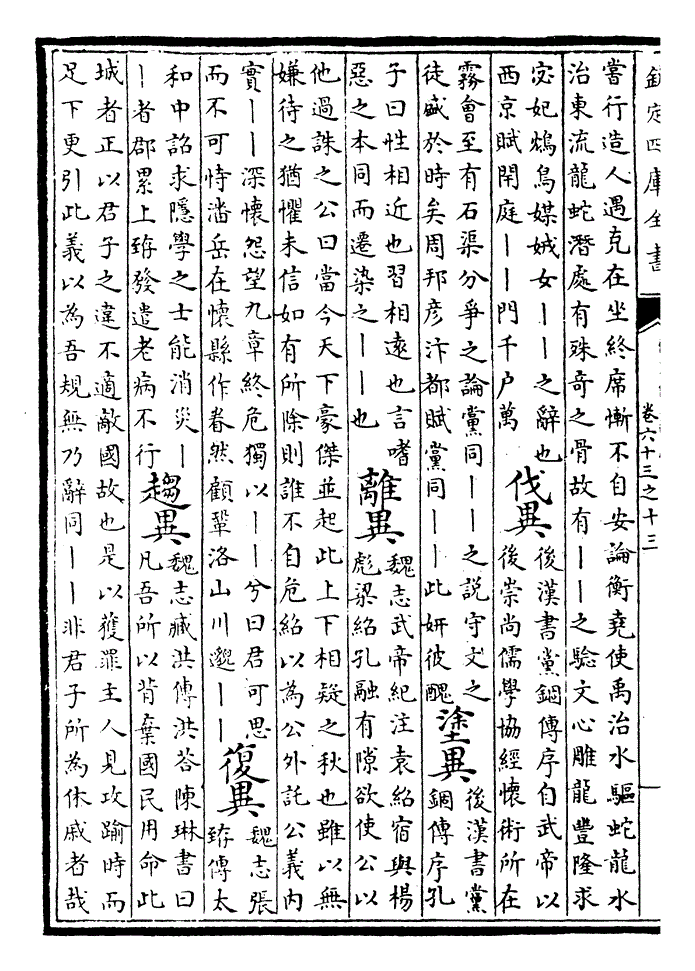 欽定四庫全書
卷六十三之十三
嘗行造人遇克在坐終席慚不自安論衡堯使禹治水驅蛇龍水
治東流龍蛇潛處有殊奇之骨故有||之驗文心雕龍豐隆求
宓妃鴆鳥媒娀女||之辭也
西京賦閈庭||門千户萬
伐異
後漢書黨錮傳序自武帝以
後崇尚儒學協經懷術所在
霧會至有石渠分爭之論黨同||之說守文之
徒盛於時矣周邦彥汴都賦黨同||此妍彼醜
塗異
後漢書黨
錮傳序孔
子曰性相近也習相遠也言嗜
惡之本同而遷染之||也
離異
魏志武帝紀注袁紹宿與楊
彪梁紹孔融有隙欲使公以
他過誅之公曰當今天下豪傑並起此上下相疑之秋也雖以無
嫌待之猶懼未信如有所除則誰不自危紹以為公外託公義内
實||深懷怨望九章終危獨以||兮曰君可思
而不可恃潘岳在懷縣作眷然顧鞏洛山川邈||
復異
魏志張
臶傳太
和中詔求隱學之士能消災|
|者郡累上臶發遣老病不行
趨異
魏志臧洪傳洪荅陳琳書曰
凡吾所以背棄國民用命此
城者正以君子之違不適敵國故也是以獲罪主人見攻踰時而
足下更引此義以為吾規無乃辭同||非君子所為休戚者哉